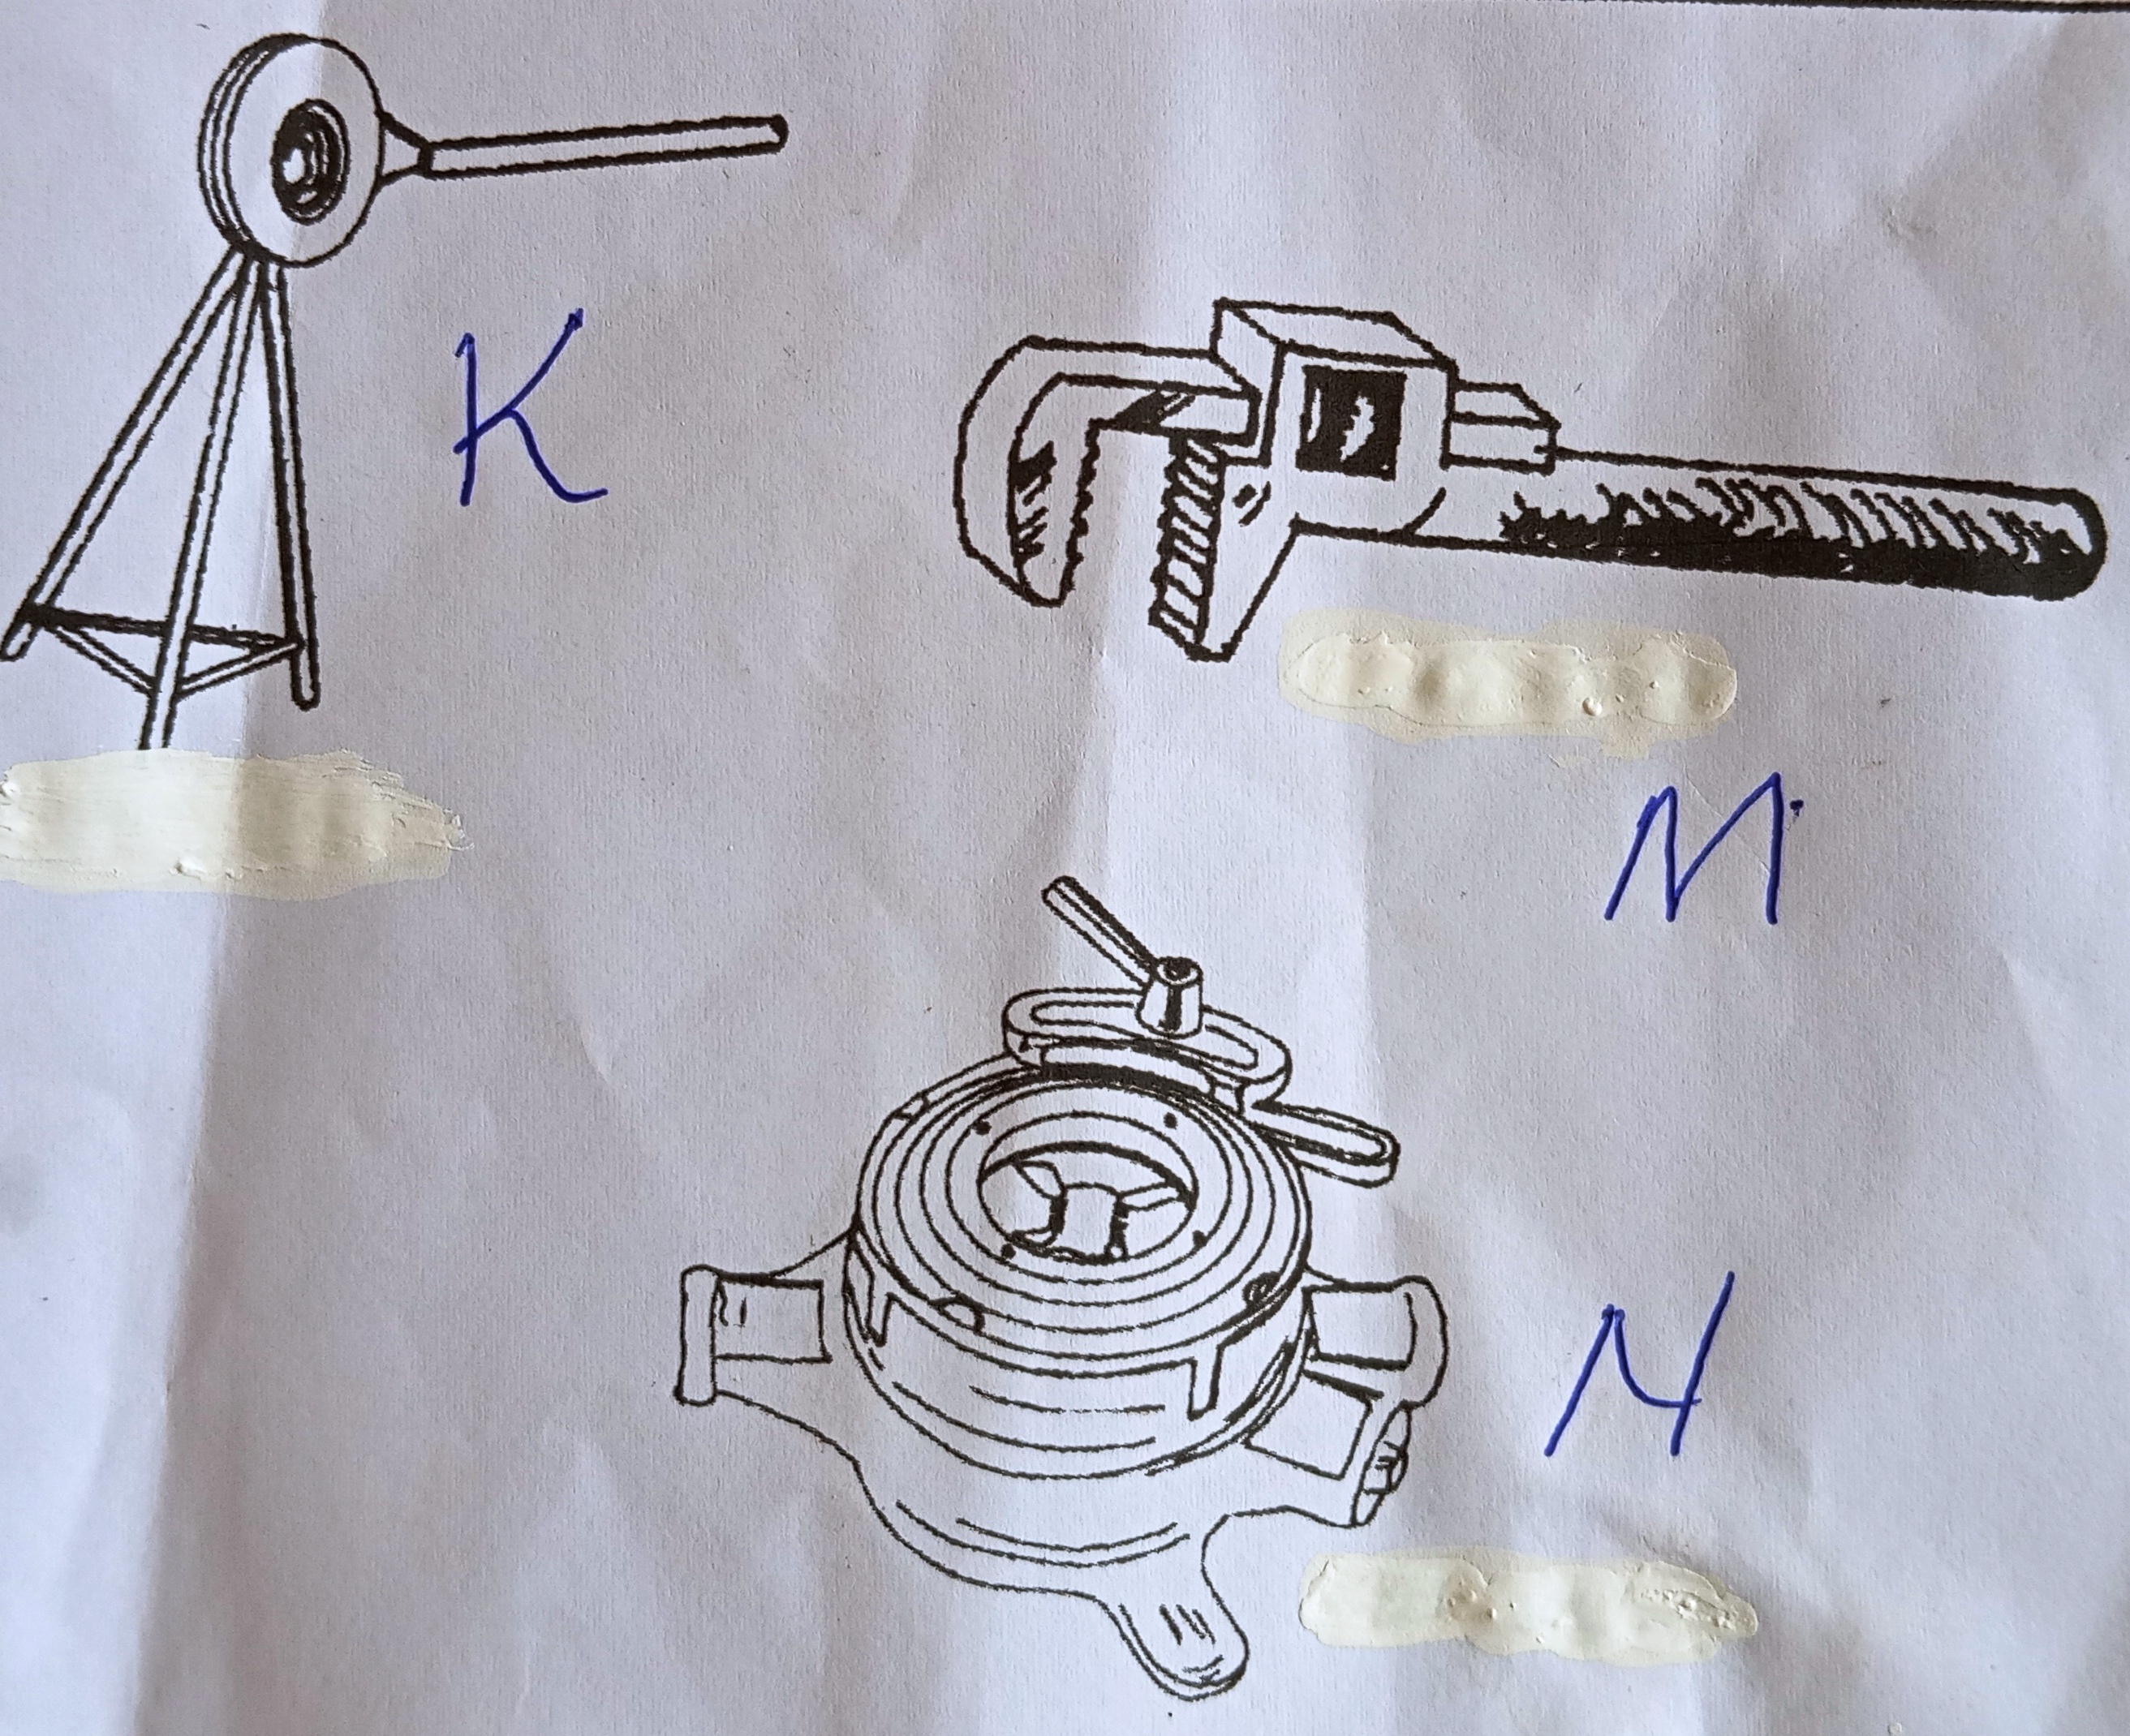 K
M
N